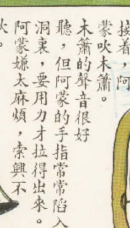 接着，阿
蒙吹木簫。
木簫的聲音很好
聽，但阿蒙的手指常常陷入
洞裏，要用力才拉得出來。
阿蒙嫌太麻煩，索興不
吹。